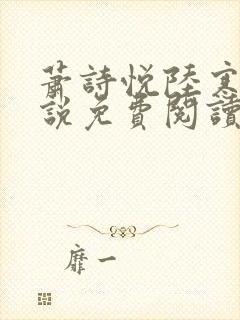 蕭詩悅陸寒
說免費閱讀
靡一